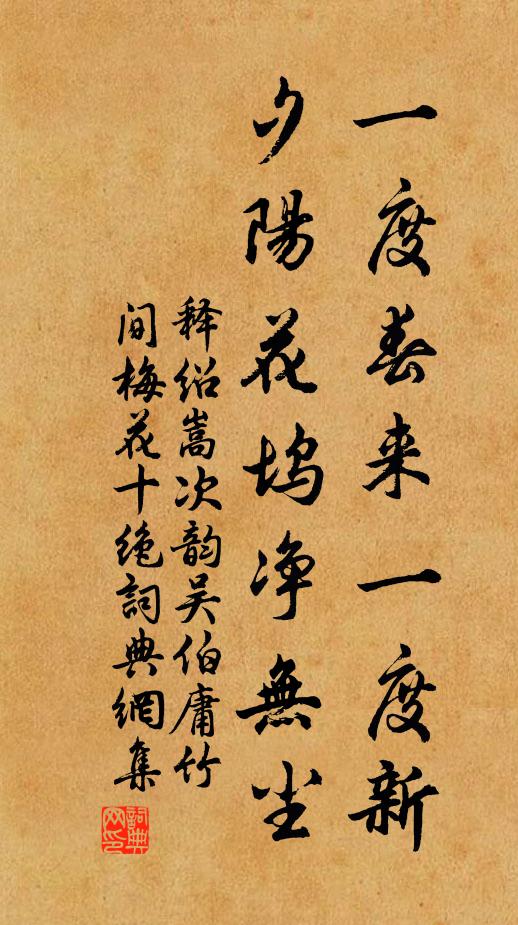 一度春来一度新
夕陽花坞净無尘
释绍嵩次韵吴伯庸竹
间梅花十绝詞典網集
詞典网印